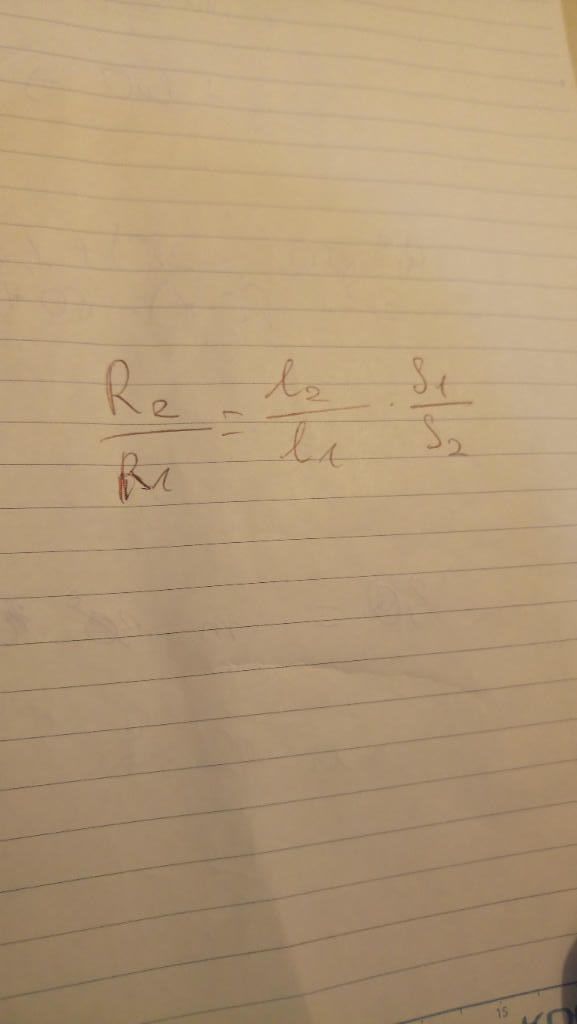 R₂/R₁ = l₂/l₁ · S₁/S₂
15